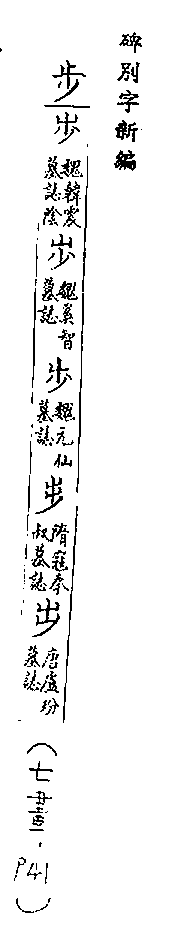 碑別字新編
步
步
魏韓震
墓誌陰
步
魏奚智
墓誌
步
魏元仙
墓誌
步
隋寇奉
叔墓誌
步
唐盧玢
墓誌
(七畫.P41)